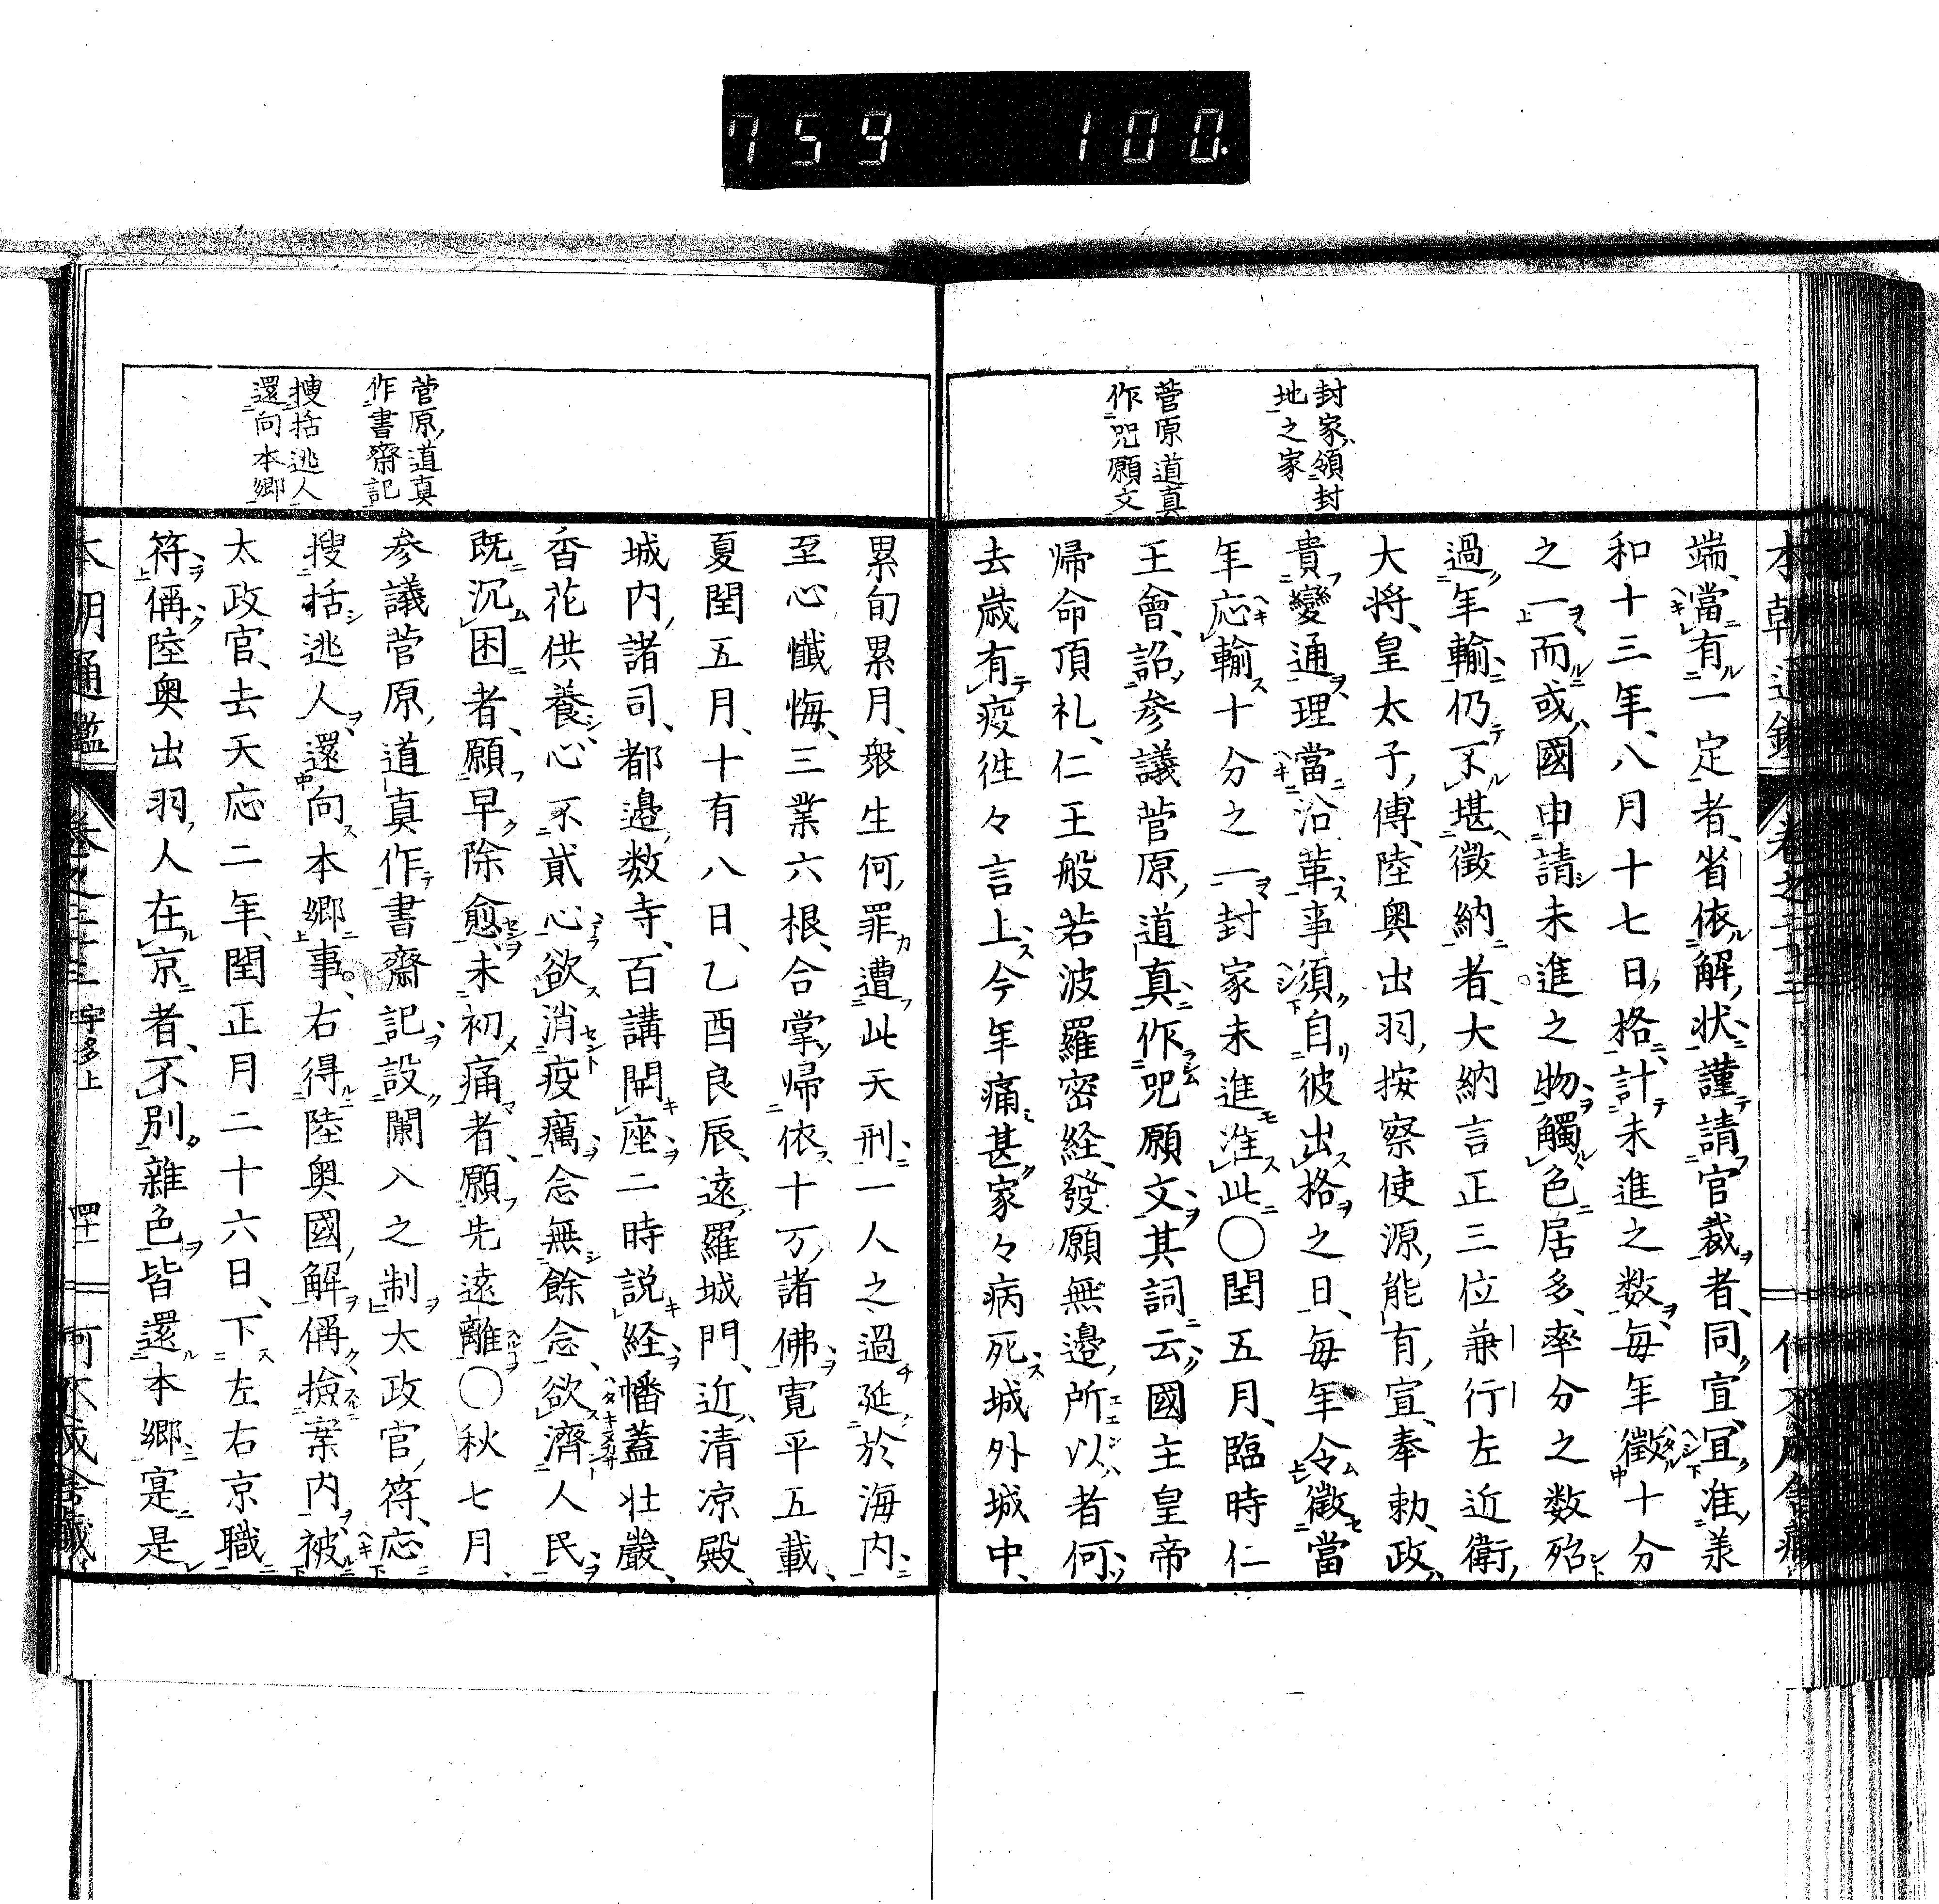 759 100.
封家、領封
地之家
菅原道真
作咒願文
端、當有一定者、省依解状、謹請官裁者、同宣、宜准承
和十三年、八月十七日、格、計未進之数、毎年徴十分
之一、而或國申請未進之物、觸色居多、率分之数、殆
過年輸、仍不堪徴納者、大納言正三位兼行左近衛
大将、皇太子傅、陸奥出羽按察使源能有宣、奉勅、政
貴變通、理當沿革、事須自彼出格之日、毎年令徴當
年応輸十分之一、封家未進准此〇閏五月、臨時仁
王會、詔参議菅原道真作咒願文、其詞云、國主皇帝
帰命頂礼、仁王般若波羅密経、發願無邊、所以者何、
去歳有疫、徃々言上、今年痛甚、家々病死、城外城中、
菅原道真
作書齋記
搜括逃人
還向本郷
累旬累月、衆生何罪、遭此天刑、一人之過、延於海内、
至心懺悔、三業六根、合掌帰依、十万諸佛、寛平五載、
夏閏五月、十有八日、乙酉良辰、遠羅城門、近清凉殿、
城内諸司、都邊数寺、百講開座、二時説経、幡蓋壮嚴、
香花供養、心不貳心、欲消疫癘、念無餘念、欲濟人民、
既沉困者、願早除愈、未初痛者、願先遠離〇秋七月、
参議菅原道真作書齋記、設闌入之制、太政官符、応
搜括逃人、還向本郷事、右得陸奥國解偁、撿案内、被
太政官、去天応二年、閏正月二十六日、下左右京職
符偁、陸奥出羽人在京者、不別雜色、皆還本郷、寔是
本朝通鑑 卷之二十三 宇多上 四十一